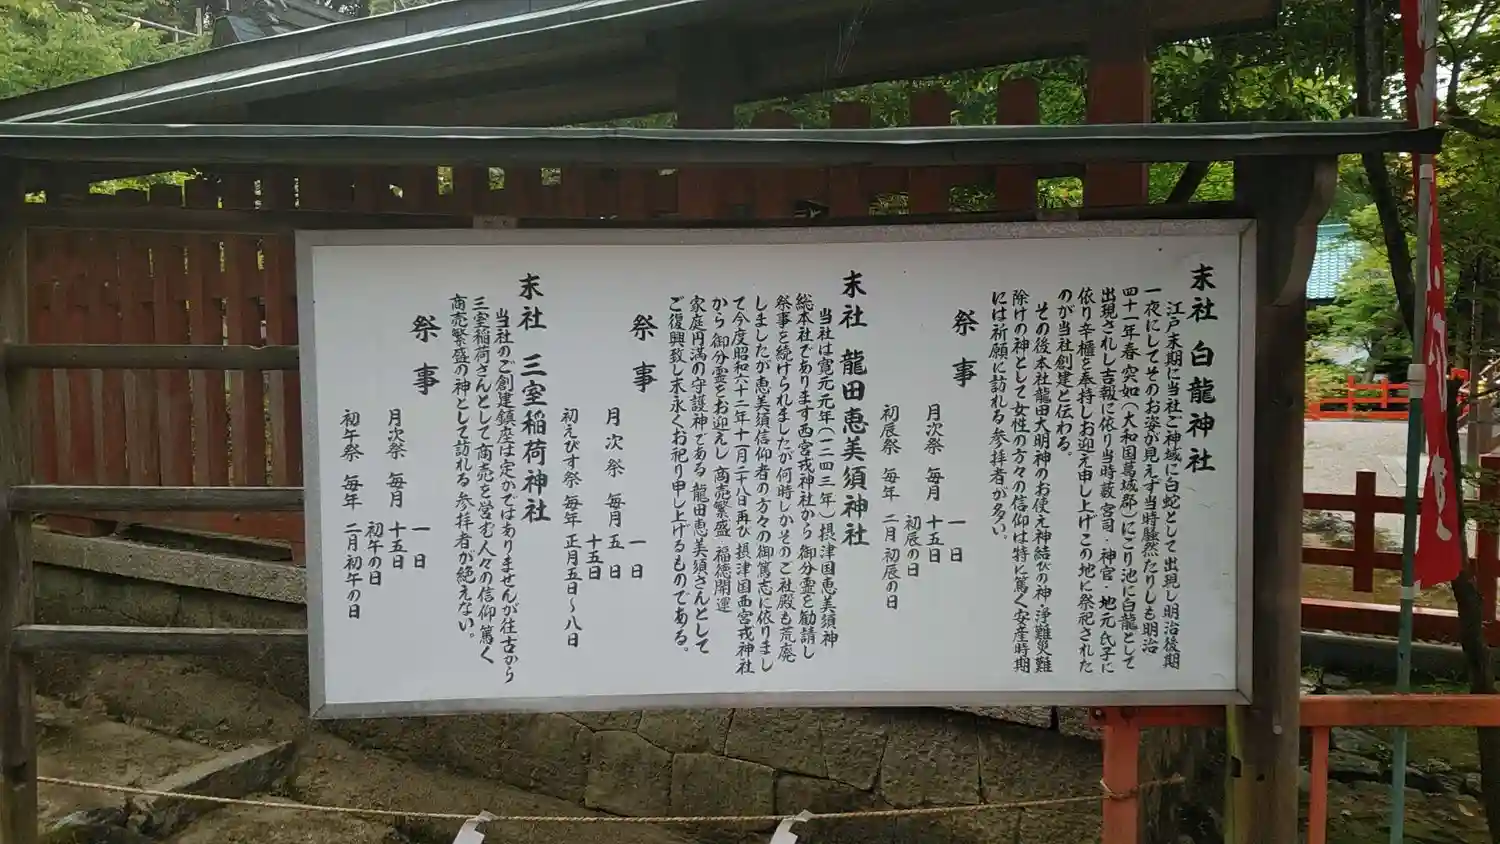 末社 白龍神社
江戸末期に当社ご神域に白蛇として出現し明治後期
一夜にしてそのお姿が見えず当時騒然たりしも明治
四十一年春突如(大和国葛城郡)にごり池に白龍として
出現されし吉報に依り当時藪宮司・神官・地元氏子に
依り辛櫃を奉持しお迎え申し上げこの地に祭祀された
のが当社創建と伝わる。
その後本社龍田大明神のお使え神結びの神 浄難災難
除けの神として女性の方々の信仰は特に篤く安産時期
には祈願に訪れる参拝者が多い。
祭事
月次祭 毎月 一日
十五日
初辰の日
初辰祭 毎年 二月 初辰の日
末社 龍田恵美須神社
当社は寛元元年(一二四三年)摂津国恵美須神
総本社であります西宮戎神社から御分霊を勧請し
祭事を続けられましたが何時しかそのご社殿も荒廃
しましたが恵美須信仰者の方々の御篤志に依りまし
て今度昭和六十二年十一月二十八日再び摂津国西宮戎神社
から御分霊をお迎えし 商売繁盛 福徳開運
家庭円満の守護神である龍田恵美須さんとして
ご復興致し末永くお祀り申し上げるものである。
祭事
月次祭 毎月 一日
五日
十五日
初えびす祭 毎年 正月五日~八日
末社 三室稲荷神社
当社のご創建鎮座は定かではありませんが往古から
三室稲荷さんとして商売を営む人々の信仰篤く
商売繁盛の神として訪れる参拝者が絶えない。
祭事
月次祭 毎月 一日
十五日
初午の日
初午祭 毎年 二月初午の日